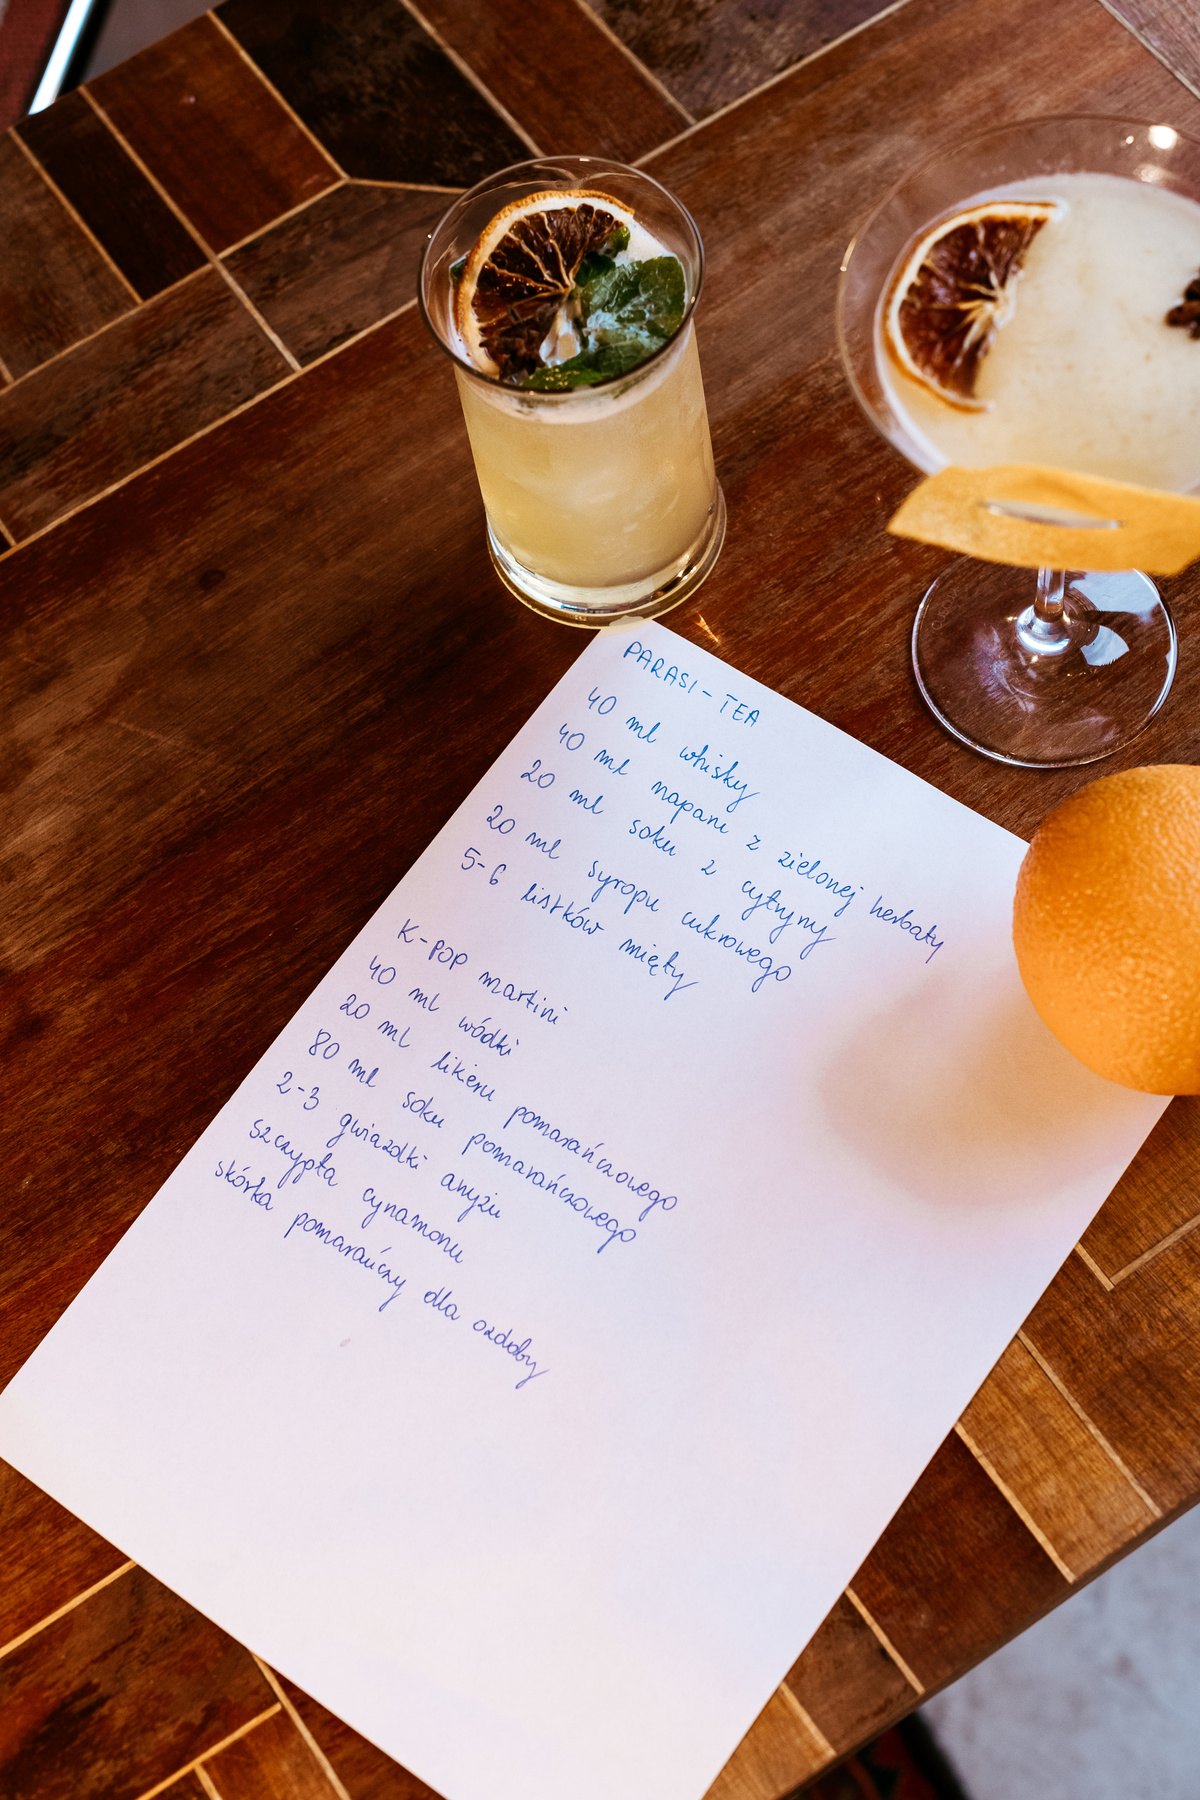 PARASI-TEA
40 ml whisky
40 ml naparu z zielonej herbaty
20 ml soku z cytryny
20 ml syropu cukrowego
5-6 listków mięty
K-pop martini
40 ml wódki
20 ml likieru pomarańczowego
80 ml soku pomarańczowego
2-3 gwiazdki anyżu
szczypta cynamonu
skórka pomarańczy dla ozdoby